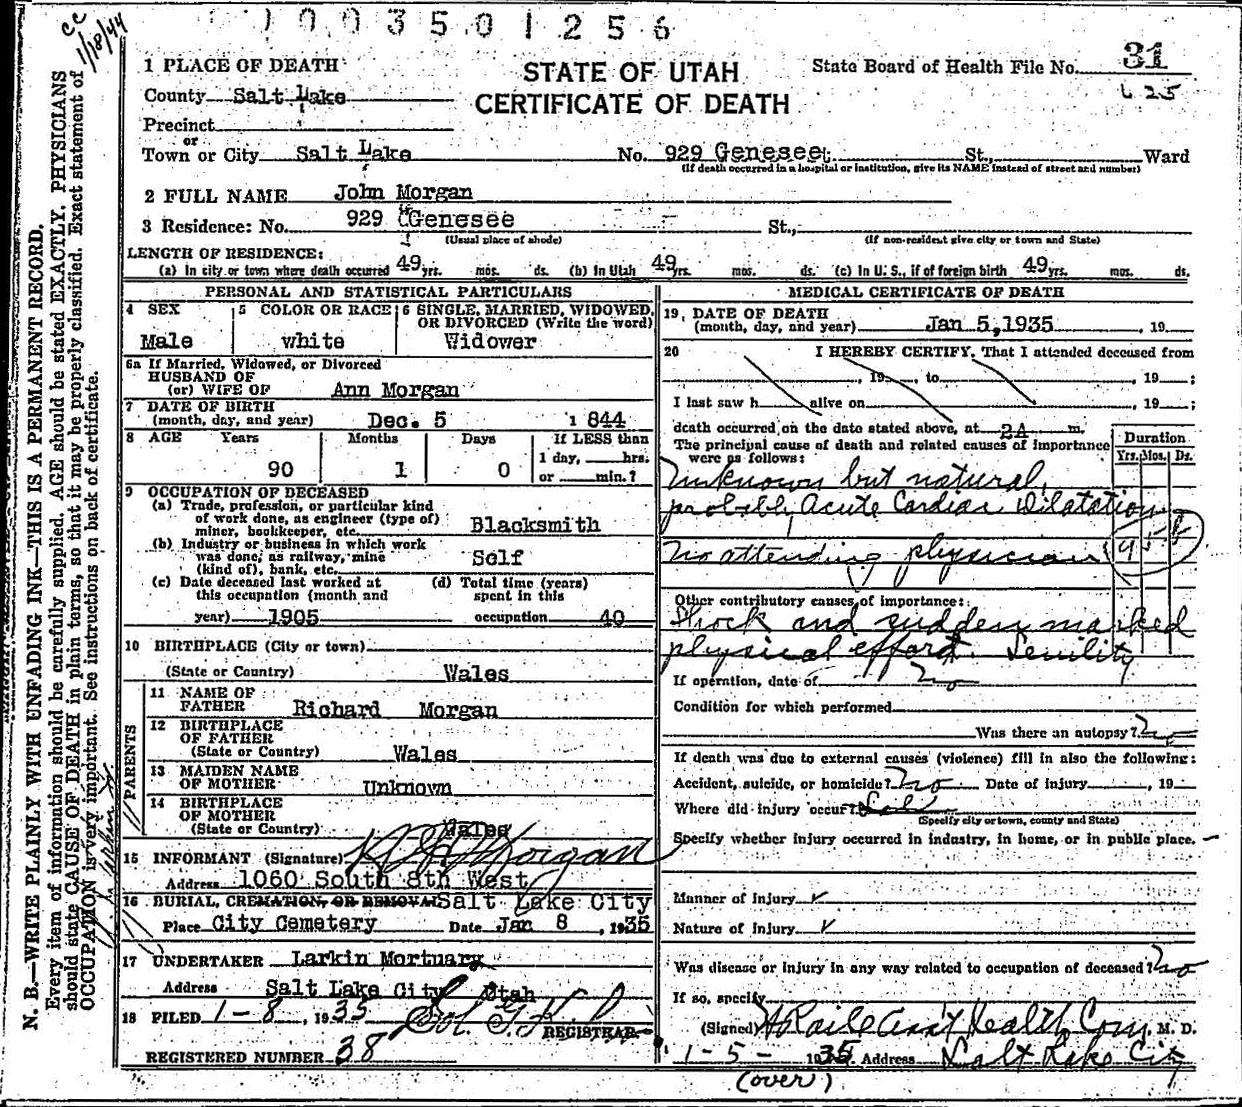 1003501256
cc
1/18/44
N. B.—WRITE PLAINLY WITH UNFADING INK—THIS IS A PERMANENT RECORD.
Every item of information should be carefully supplied. AGE should be stated EXACTLY. PHYSICIANS
should state CAUSE OF DEATH in plain terms, so that it may be properly classified. Exact statement of
OCCUPATION is very important. See instructions on back of certificate.
1 PLACE OF DEATH
STATE OF UTAH
CERTIFICATE OF DEATH
State Board of Health File No. 31
L 25
County Salt Lake
Precinct
or
Town or City Salt Lake No. 929 Genesee St., Ward
(If death occurred in a hospital or institution, give its NAME instead of street and number)
2 FULL NAME John Morgan
3 Residence: No. 929 Genesee St.,
(Usual place of abode) (If non-resident give city or town and State)
LENGTH OF RESIDENCE:
(a) In city or town where death occurred 49 yrs. mos. ds. (b) In Utah 49 yrs. mos. ds. (c) In U. S., if of foreign birth 49 yrs. mos. ds.
PERSONAL AND STATISTICAL PARTICULARS
4 SEX Male
5 COLOR OR RACE white
6 SINGLE, MARRIED, WIDOWED, OR DIVORCED (Write the word)
Widower
6a If Married, Widowed, or Divorced
HUSBAND OF
(or) WIFE OF Ann Morgan
7 DATE OF BIRTH
(month, day, and year) Dec. 5 1844
8 AGE Years Months Days If LESS than
90 1 0 1 day, hrs.
or min.?
9 OCCUPATION OF DECEASED
(a) Trade, profession, or particular kind
of work done, as engineer (type of)
miner, bookkeeper, etc. Blacksmith
(b) Industry or business in which work
was done, as railway, mine
(kind of), bank, etc. Self
(c) Date deceased last worked at
this occupation (month and
year) 1905
(d) Total time (years)
spent in this
occupation 40
10 BIRTHPLACE (City or town)
(State or Country) Wales
PARENTS
11 NAME OF
FATHER Richard Morgan
12 BIRTHPLACE
OF FATHER
(State or Country) Wales
13 MAIDEN NAME
OF MOTHER Unknown
14 BIRTHPLACE
OF MOTHER
(State or Country) Wales
15 INFORMANT (Signature) Morgan
Address 1060 South 8th West
16 BURIAL, CREMATION, OR REMOVAL Salt Lake City
Place City Cemetery Date Jan 8, 1935
17 UNDERTAKER Larkin Mortuary
Address Salt Lake City Utah
18 FILED 1-8, 1935
REGISTRAR
REGISTERED NUMBER 38
MEDICAL CERTIFICATE OF DEATH
19. DATE OF DEATH
(month, day, and year) Jan 5, 1935, 19
20 I HEREBY CERTIFY, That I attended deceased from
, 19 , to , 19 ;
I last saw h alive on , 19 ;
death occurred on the date stated above, at 2A m.
The principal cause of death and related causes of importance
were as follows:
Duration
Yrs. Mos. Ds.
Unknown but natural,
probably Acute Cardiac Dilatation
No attending physician
Other contributory causes of importance:
Shock and sudden marked
physical effort. Senility
If operation, date of no
Condition for which performed
Was there an autopsy? No
If death was due to external causes (violence) fill in also the following:
Accident, suicide, or homicide? No Date of injury , 19
Where did injury occur?
(Specify city or town, county and State)
Specify whether injury occurred in industry, in home, or in public place.
Manner of injury ✓
Nature of injury ✓
Was disease or injury in any way related to occupation of deceased? No
If so, specify
(Signed) Ass't Health Com, M. D.
1-5- 1935 Address Salt Lake City
(over)